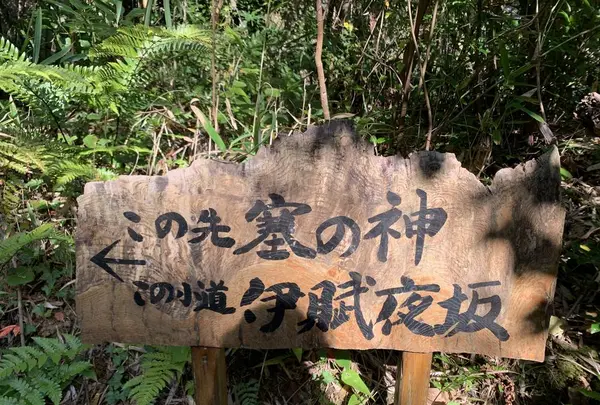 この先 塞の神
この小道 伊賦夜坂